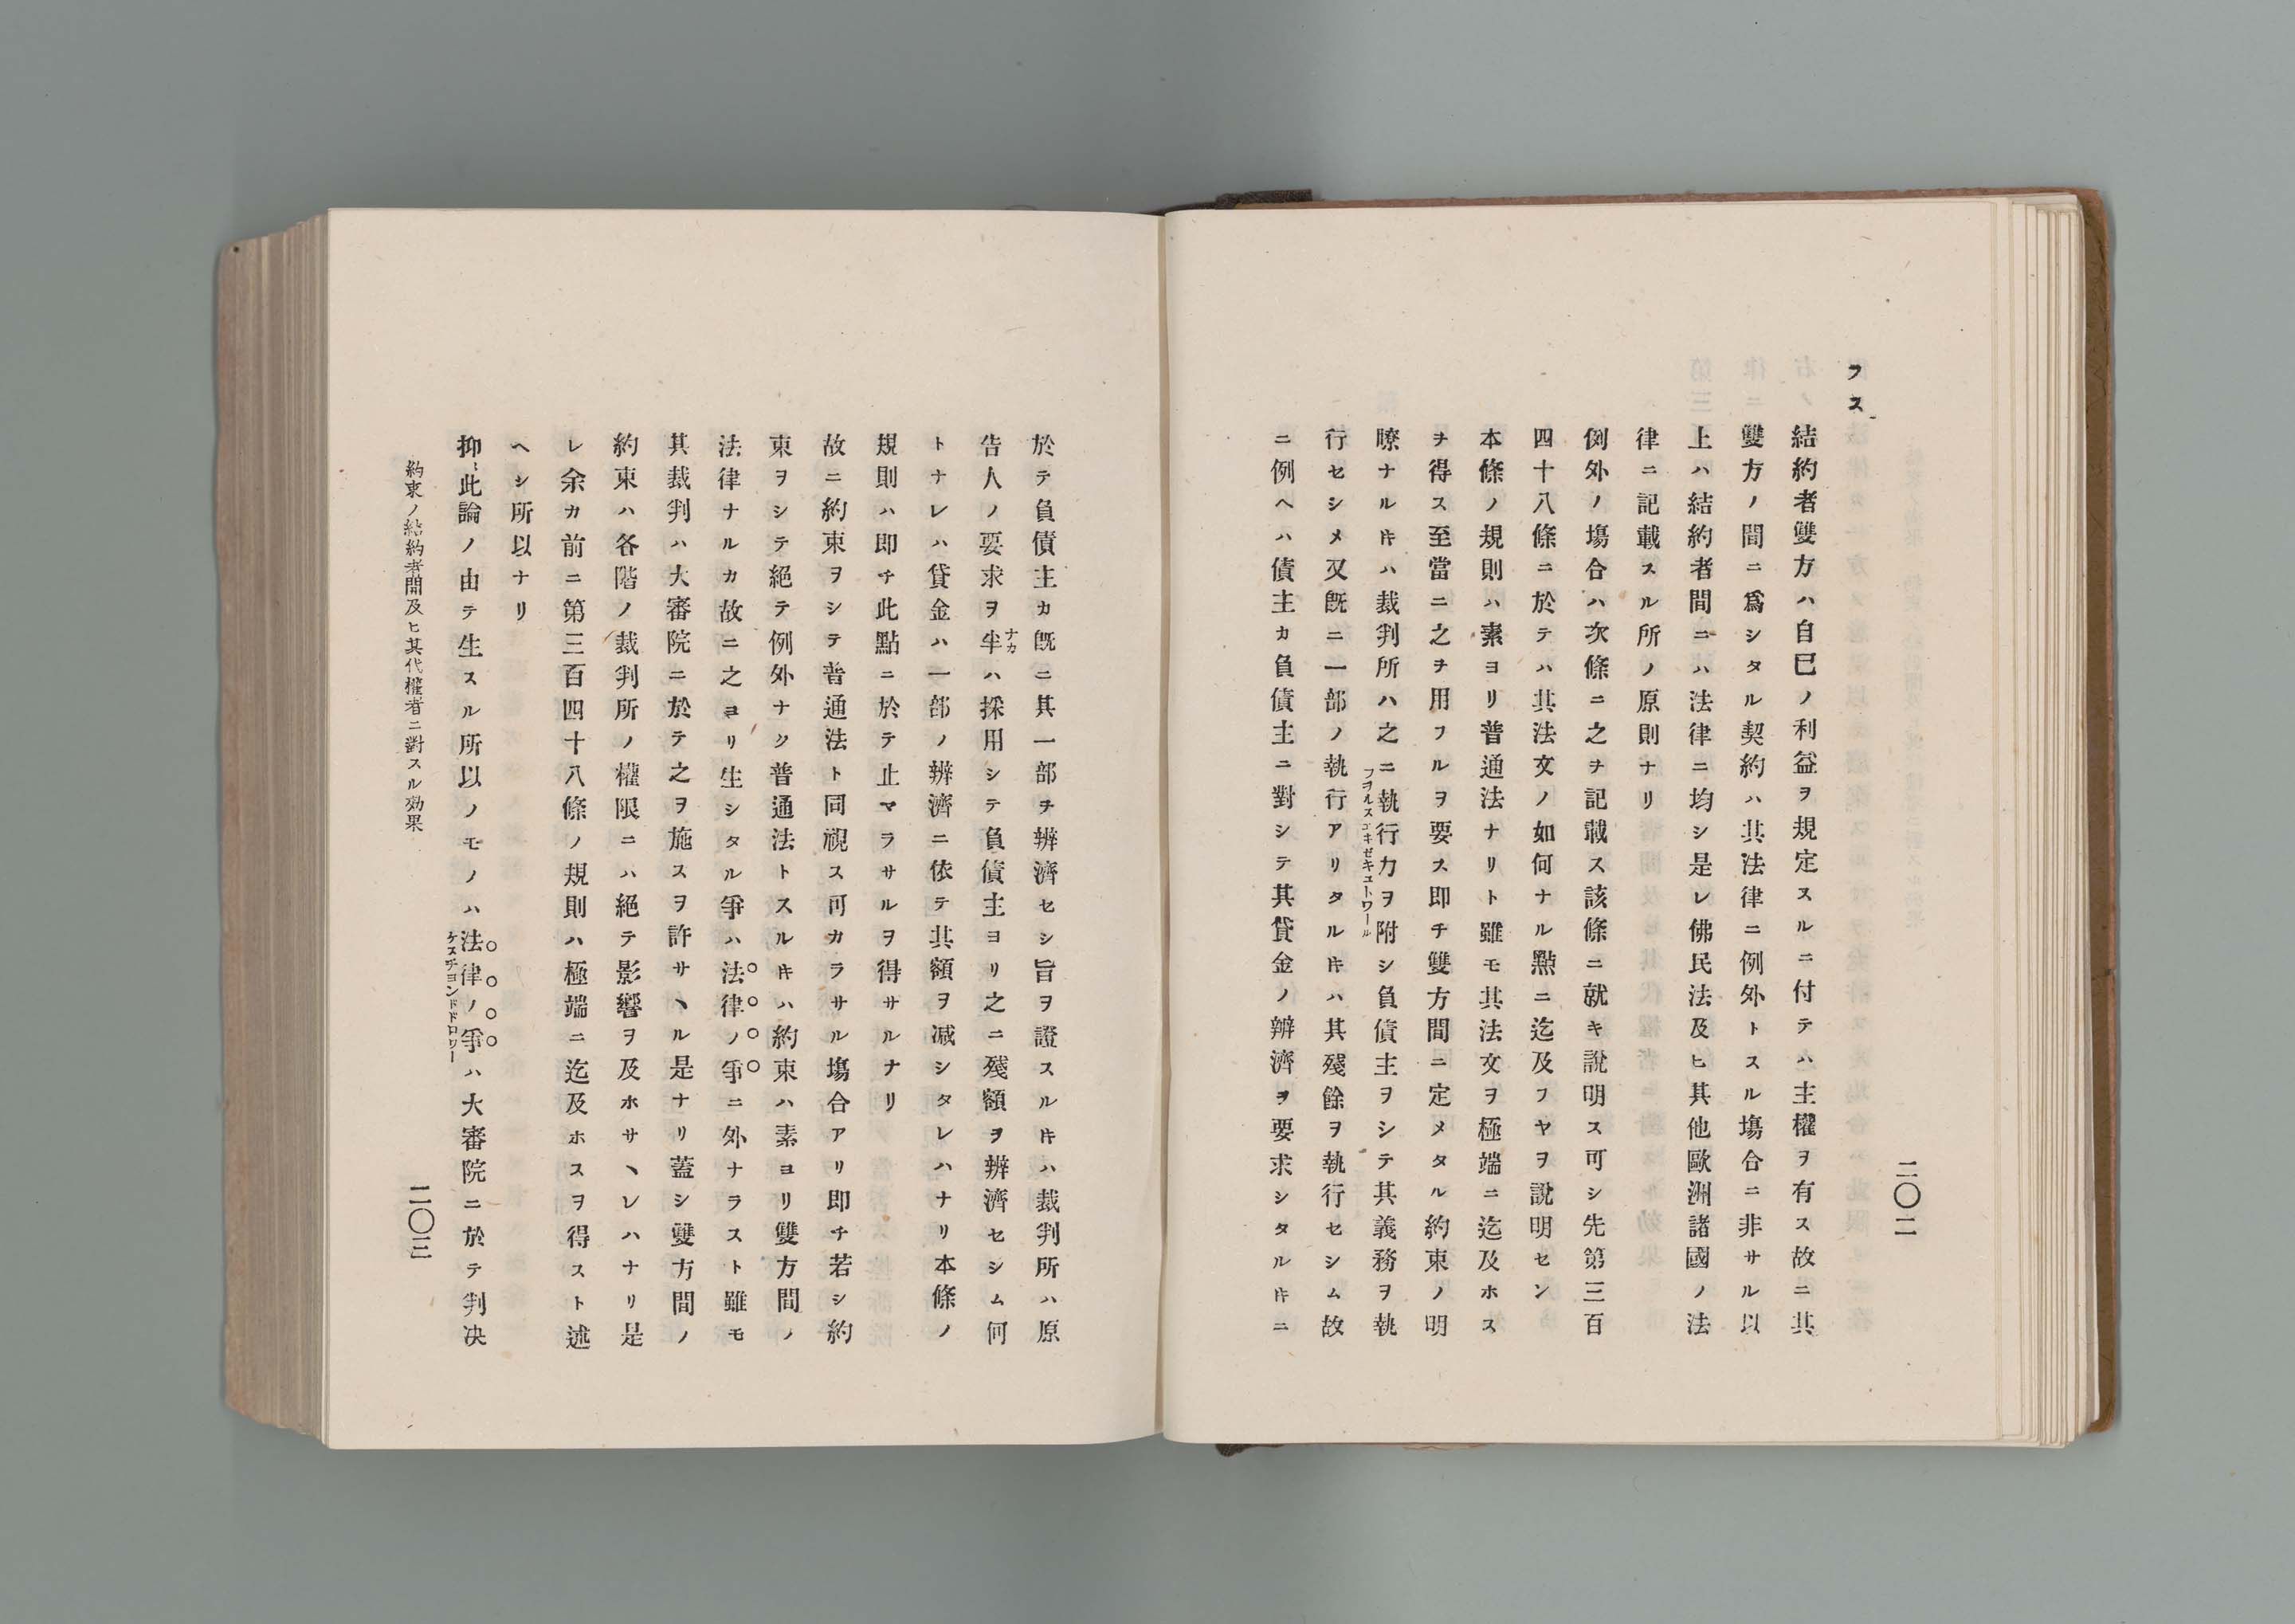 二〇二
フス
結約者雙方ハ自已ノ利益ヲ規定スルニ付テハ主權ヲ有ス故ニ其
雙方ノ間ニ爲シタル契約ハ其法律ニ例外トスル塲合ニ非サル以
上ハ結約者間ニハ法律ニ均シ是レ佛民法及ヒ其他歐洲諸國ノ法
律ニ記載スル所ノ原則ナリ
例外ノ塲合ハ次條ニ之ヲ記載ス該條ニ就キ說明ス可シ先第三百
四十八條ニ於テハ其法文ノ如何ナル點ニ迄及フヤヲ說明セン
本條ノ規則ハ素ヨリ普通法ナリト雖モ其法文ヲ極端ニ迄及ホス
ヲ得ス至當ニ之ヲ用フルヲ要ス即チ雙方間ニ定メタル約束ノ明
瞭ナル𪜈ハ裁判所ハ之ニ執行力ヲ附シ負債主ヲシテ其義務ヲ執
フヲルスヱキゼキュトワール
行セシメ又旣ニ一部ノ執行アリタル𪜈ハ其殘餘ヲ執行セシム故
ニ例ヘハ債主カ負債主ニ對シテ其貸金ノ辨濟ヲ要求シタル𪜈ニ
於テ負債主カ旣ニ其一部ヲ辨濟セシ旨ヲ證スル𪜈ハ裁判所ハ原
告人ノ要求ヲ半ハ採用シテ負債主ヨリ之ニ殘額ヲ辨濟セシム何
ナカ
トナレハ貸金ハ一部ノ辨濟ニ依テ其額ヲ减シタレハナリ本條ノ
規則ハ即チ此點ニ於テ止マラサルヲ得サルナリ
故ニ約束ヲシテ普通法ト同視ス可カラサル塲合アリ即チ若シ約
束ヲシテ絕テ例外ナク普通法トスル𪜈ハ約束ハ素ヨリ雙方間ノ
法律ナルカ故ニ之ヨリ生シタル爭ハ法律ノ爭ニ外ナラスト雖モ
其裁判ハ大審院ニ於テ之ヲ施スヲ許サヽル是ナリ蓋シ雙方間ノ
約束ハ各階ノ裁判所ノ權限ニハ絕テ影響ヲ及ホサヽレハナリ是
レ余カ前ニ第三百四十八條ノ規則ハ極端ニ迄及ホスヲ得スト述
ヘシ所以ナリ
抑〻此論ノ由テ生スル所以ノモノハ法律ノ爭ハ大審院ニ於テ判决
ケスチョンドドロワー
約束ノ結約者間及ヒ其代權者ニ對スル効果
二〇三